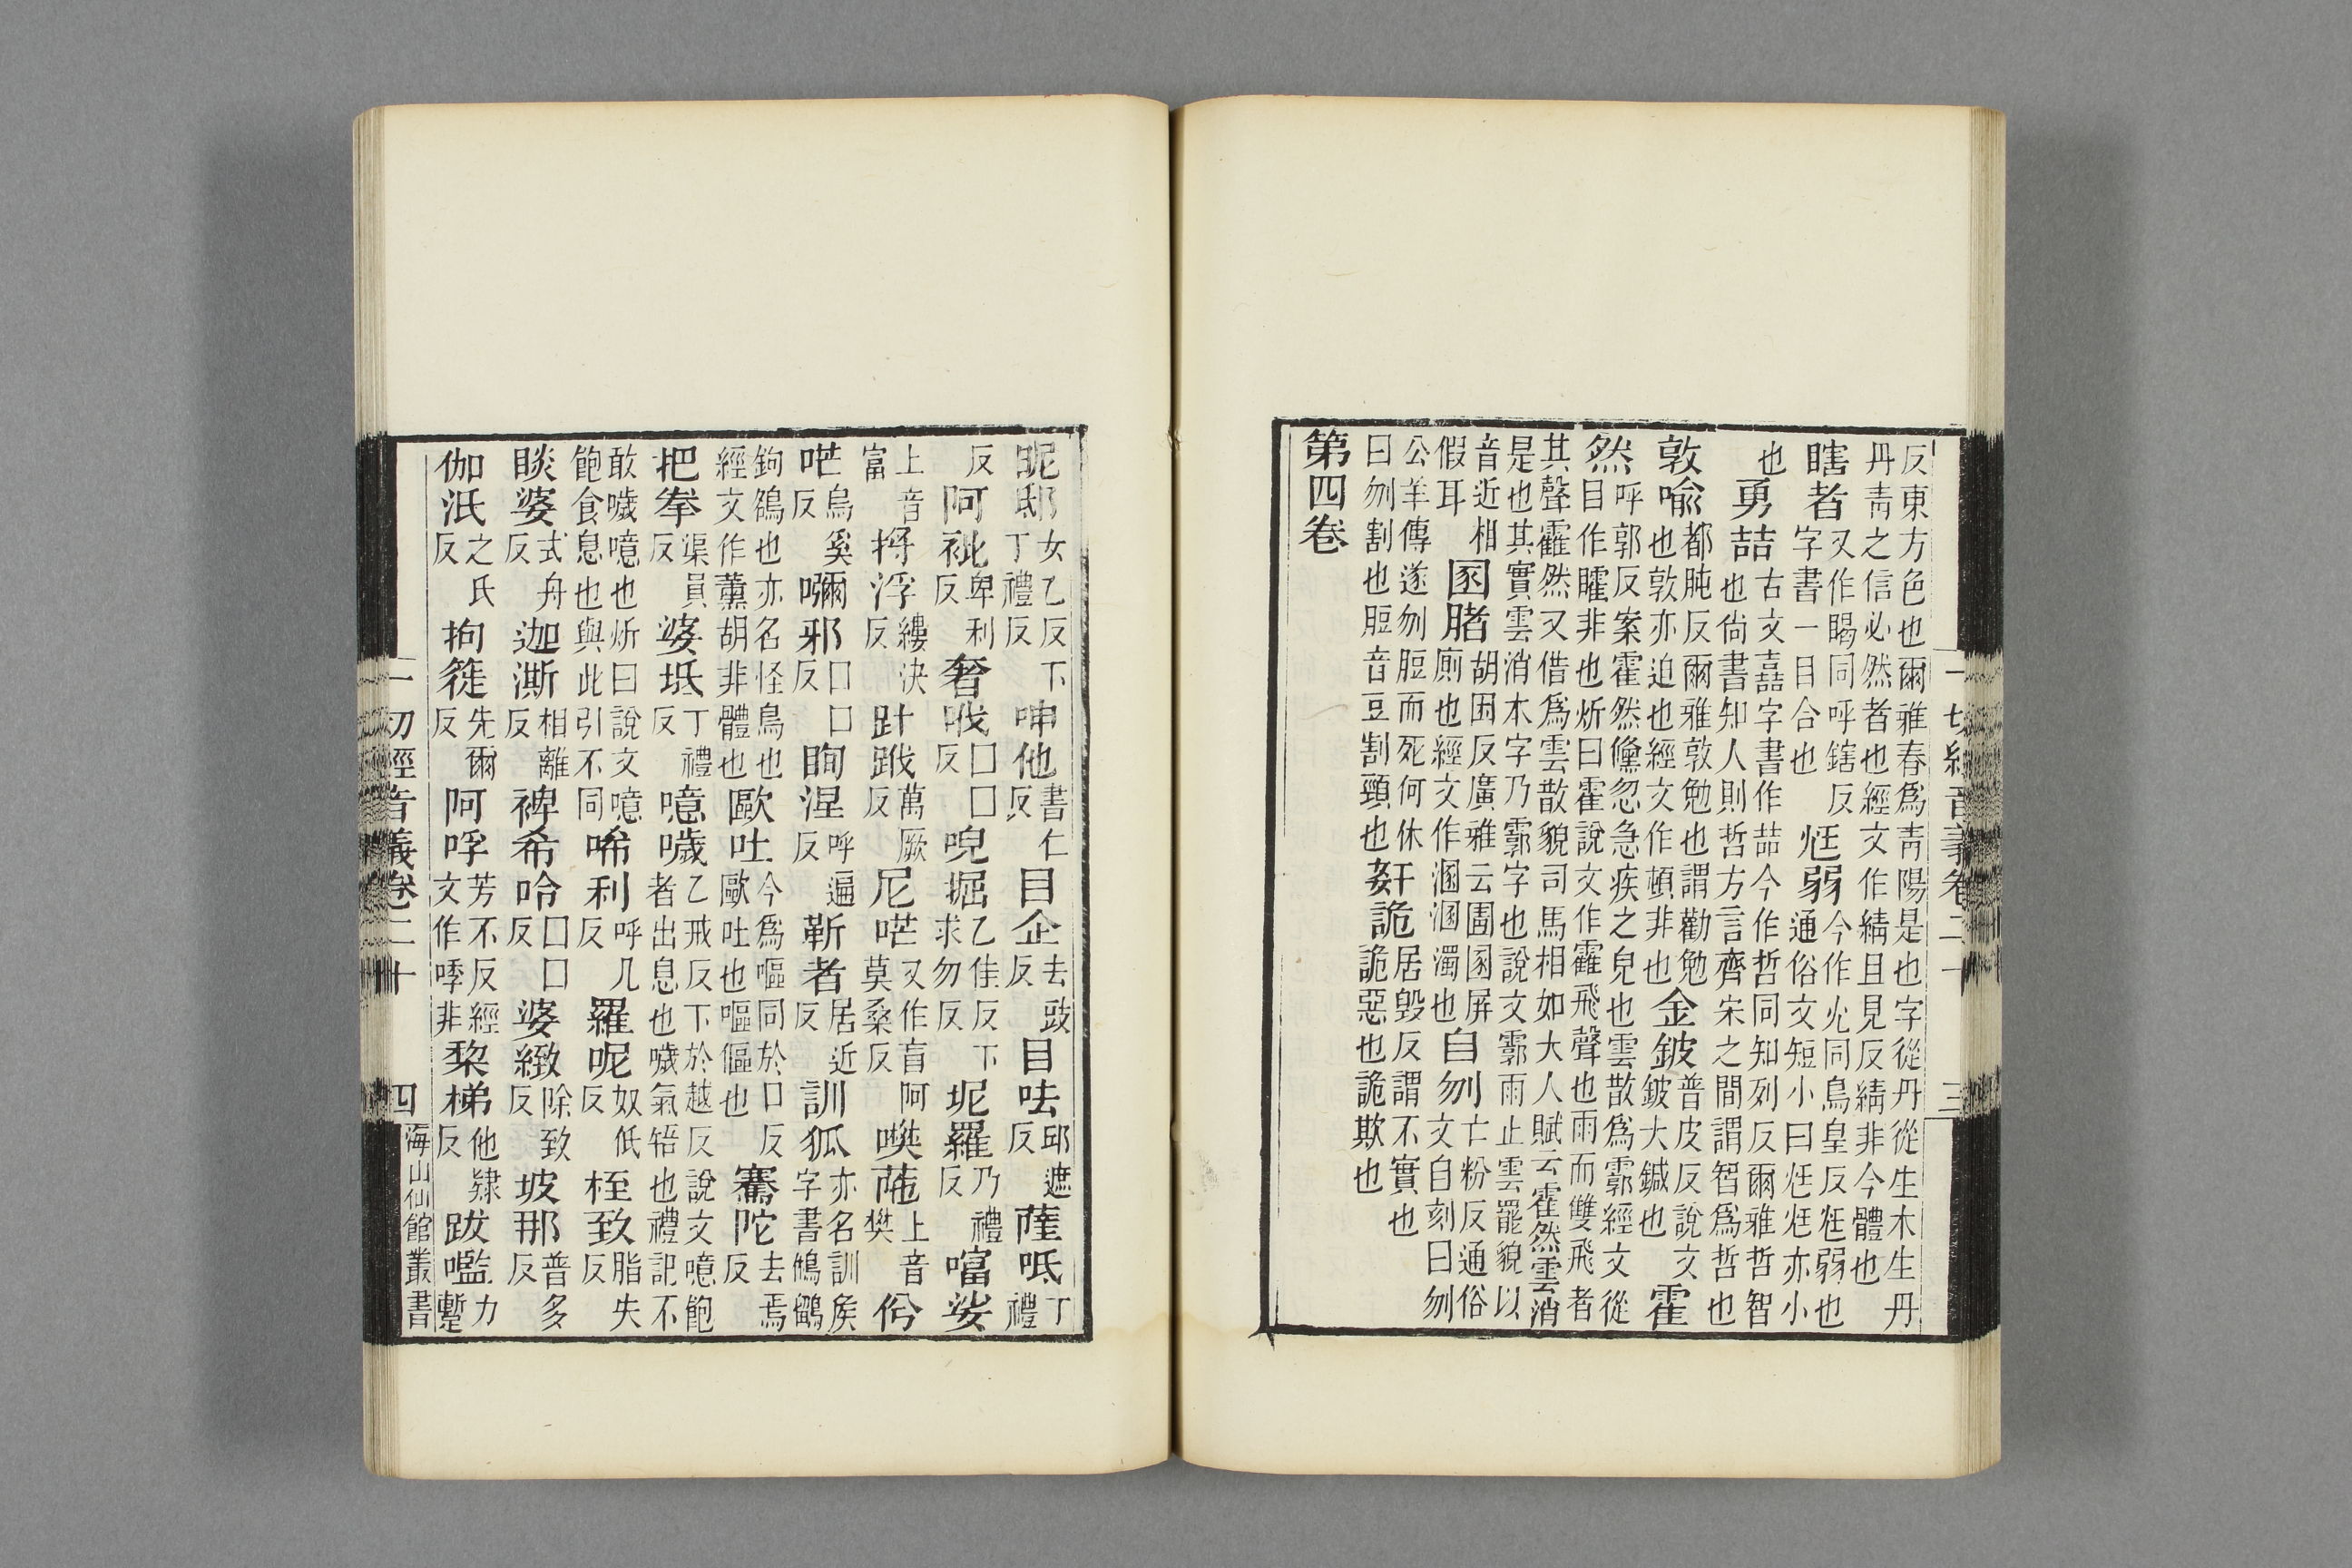 反東方色也爾雅春爲青陽是也字從丹從生木生丹丹青之信必然者也經文作綪且見反綪非今體也
瞎者又作𥈭同呼鎋反字書一目合也尪弱今作尣同烏皇反尪弱也通俗文短小曰尪尪亦小
也勇喆古文嚞字書作喆今作哲同知列反爾雅哲智也尚書知人則哲方言齊宋之間謂智爲哲也
敦喻都肫反爾雅敦勉也謂勸勉也敦亦迫也經文作頓非也金鈹普皮反說文鈹大鍼也霍
然呼郭反案霍然儵忽急疾之皃也雲散爲霩經文從目作矐非也炘曰霍說文作靃飛聲也雨而雙飛者
其聲靃然又借爲雲散貌司馬相如大人賦云霍然雲消是也其實雲消木字乃霩字也說文霩雨止雲罷貌以
音近相假耳圂䐗胡困反廣雅云圊圂屏廁也經文作溷溷濁也自刎亡粉反通俗文自刻曰刎
公羊傳遂刎脰而死何休曰刎割也脰音豆割頸也姧詭居毀反謂不實也詭惡也詭欺也
第四卷
一切經音義卷二十 三
昵邸女乙反下丁禮反呻他書仁反目企去豉反目呿邱遮反薩呧丁禮
反阿卑利反奢囗囗反唲掘乙佳反下求勿反坭羅乃禮反娑
上音富捋浮縷決反萬厥反尼又作盲莫桑反阿上音樊
烏奚反嚸邪囗囗反眴涅呼遍反靳者居近反訓狐亦名訓侯字書鵂鶹
鉤鵅也亦名怪鳥也經文作薰胡非體也歐吐今爲嘔同於口反歐吐也嘔傴也騫陀去焉反
把拳渠員反婆坻丁禮反噫噦乙戒反下於越反說文噫飽者出息也噦氣牾也禮記不
敢噦噫也炘曰說文噫飽食息也與此引不同唏利呼几反羅呢奴低反桎致脂失反
睒婆式冉反迦澌相離反裨希哈囗囗反婆緻除致反坡那普多反
伽汦之氏反拘簁先爾反阿哹芳不反經文作㗌非棃梯他隸反跋㘕力蹔
一切經音義卷二十 四 海山仙館叢書